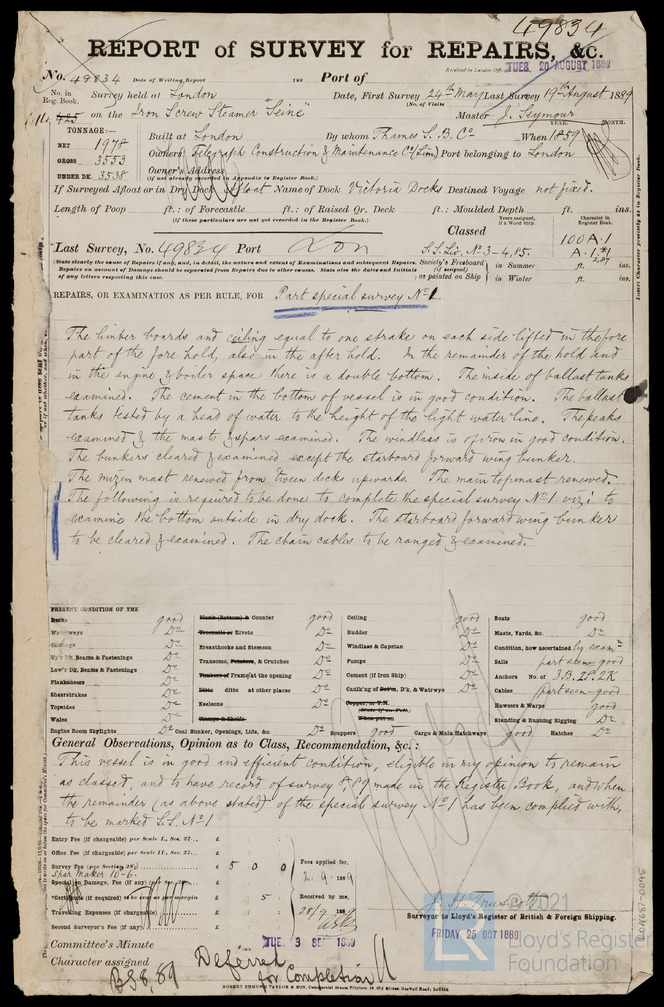 49834
REPORT of SURVEY for REPAIRS, &c.
No. 49834 Date of Writing Report 188 Port of
Received in London Office TUES. 20 AUGUST 1889
No. in Reg. Book. Survey held at London Date, First Survey 24th May Last Survey 19th August 1889
(No. of Visits
on the Iron Screw Steamer "Seine" Master J. Seymour
YEAR. MONTH.
TONNAGE:—
NET 1978
GROSS 3553
UNDER DK. 3538
Built at London By whom Thames S. B. Co When 1859
Owners Telegraph Construction & Maintenance Co (Lim) Port belonging to London
Owner's Address
(if not already recorded in Appendix to Register Book.)
If Surveyed Afloat or in Dry Dock Afloat Name of Dock Victoria Docks Destined Voyage not fixed.
Length of Poop ft.: of Forecastle ft.: of Raised Qr. Deck ft.: Moulded Depth ft. ins.
(if these particulars are not yet recorded in the Register Book.)
Years assigned, if a Wood Ship.
Character in Register Book.
Classed 100 A.1
Last Survey, No. 49834 Port Lon S.S. Liv. No 3-4,85.
(State clearly the cause of Repairs if any, and, in detail, the nature and extent of Examinations and subsequent Repairs.
Repairs on account of Damage should be separated from Repairs due to other causes. State also the dates and Initials
of any letters respecting this case.
Society's Freeboard (if assigned) as painted on Ship
in Summer ft. ins.
in Winter ft. ins.
Insert Character precisely as in Register Book.
REPAIRS, OR EXAMINATION AS PER RULE, FOR Part special survey No 1.
The limber boards and ceiling equal to one strake on each side lifted in the fore
part of the fore hold, also in the after hold. In the remainder of the hold and
in the engine & boiler space there is a double bottom. The inside of ballast tanks
examined. The cement in the bottom of vessel is in good condition. The ballast
tanks tested by a head of water to the height of the light water line. The peaks
examined & the masts & spars examined. The windlass is of iron in good condition.
The bunkers cleared & examined except the starboard forward wing bunker.
The mizen mast renewed from tween decks upwards. The main topmast renewed.
The following is required to be done to complete the special survey No 1 viz: to
examine the bottom outside in dry dock. The starboard forward wing bunker
to be cleared & examined. The chain cables to be ranged & examined.
PRESENT CONDITION OF THE
Decks good
Waterways Do
Coamings Do
Up'r Dk. Beams & Fastenings Do
Low'r Dk. Beams & Fastenings Do
Planksheers Do
Sheerstrakes Do
Topsides Do
Wales Do
Engine Room Skylights Do
Plank (Bottom) & Counter good
Treenails or Rivets Do
Breasthooks and Stemson Do
Transoms, Pointers, & Crutches Do
Timbers of Frame at the opening Do
Ditto ditto at other places Do
Keelsons Do
Clamps & Shelfs
Coal Bunker, Openings, Lids, &c. Do
Ceiling good
Rudder Do
Windlass & Capstan Do
Pumps Do
Cement (if Iron Ship) Do
Caulk'g of Bot'm, D'k, & Watrwys Do
Copper, or Y.M.
When put on
Scuppers good Cargo & Main Hatchways good
Boats good
Masts, Yards, &c. Do
Condition, how ascertained by examn
Sails part seen good
Anchors No. of 3B. 2P. 2K
Cables part seen good
Hawsers & Warps good
Standing & Running Rigging Do
Hatches Do
General Observations, Opinion as to Class, Recommendation, &c.:
This vessel is in good and efficient condition, eligible in my opinion to remain
as classed, and to have record of survey 8,89 made in the Register Book, and when
the remainder (as above stated) of the special survey No 1 has been complied with,
to be marked S.S. No 1
Entry Fee (if chargeable) per Scale I., Sec. 27... £
Office Fee (if chargeable) per Scale II., Sec. 27... £
Survey Fee (per Section 28) £ 5 0 0
Spar Maker 10-6.
Special on Damage Fee (if any) £
Certificate (if required) £ 5
Travelling Expenses (if chargeable) £
Second Surveyor's Fee (if any) £
Fees applied for,
2.9.1889
Received by me,
28/9 1889
J. H. Truscott
Surveyor to Lloyd's Register of British & Foreign Shipping.
FRIDAY 25 OCT 1889
Committee's Minute TUES. 3 SEP 1889
Character assigned Deferred
for Completion
BS 8,89
ROBERT EDMUND TAYLOR & SON, Commercial Steam Printers, 19, Old Street, Goswell Road, London
2021
Lloyd's Register
Foundation
LON687-0095